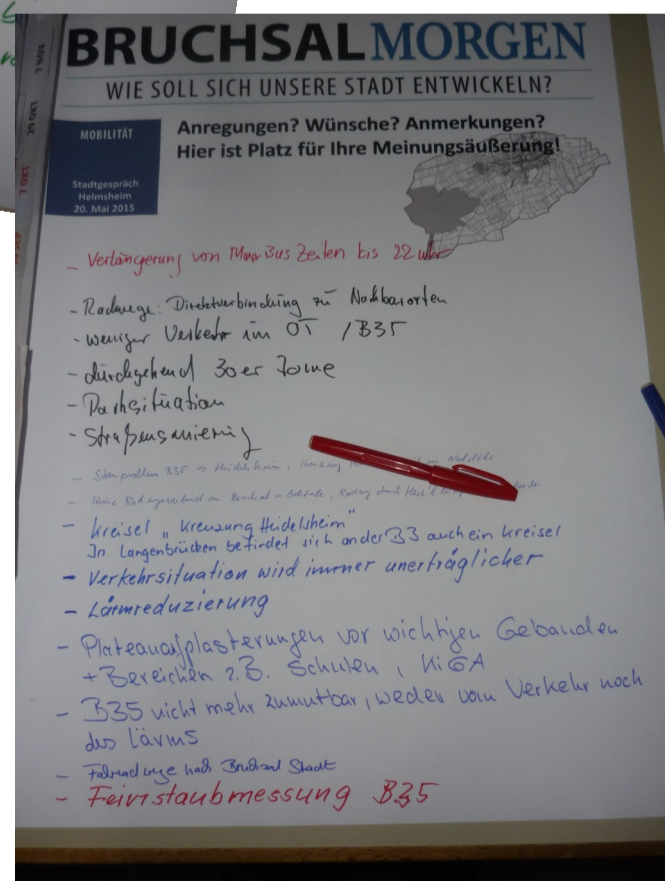 BRUCHSALMORGEN
WIE SOLL SICH UNSERE STADT ENTWICKELN?
MOBILITÄT
Stadtgespräch
Helmsheim
20. Mai 2015
Anregungen? Wünsche? Anmerkungen?
Hier ist Platz für Ihre Meinungsäußerung!
7 NOV
29 OKT
7 OKT
- Verlängerung von Bus Zeiten bis 22 Uhr
- Radwege: Direktverbindung zu Nachbarorten
- weniger Verkehr im OT / B35
- durchgehend 30er Zone
- Parksituation
- Straßensanierung
- B35 Heidelsheim,
- Keine
- Kreisel „Kreuzung Heidelsheim"
In Langenbrücken befindet sich an der B3 auch ein Kreisel
- Verkehrsituation wird immer unerträglicher
- Lärmreduzierung
- Plateauaufplasterungen vor wichtigen Gebäuden
+ Bereichen z.B. Schulen, KiGA
- B35 nicht mehr zumutbar, weder vom Verkehr noch
des Lärms
- Fahrradwege nach Bruchsal Stadt
- Feinstaubmessung B35